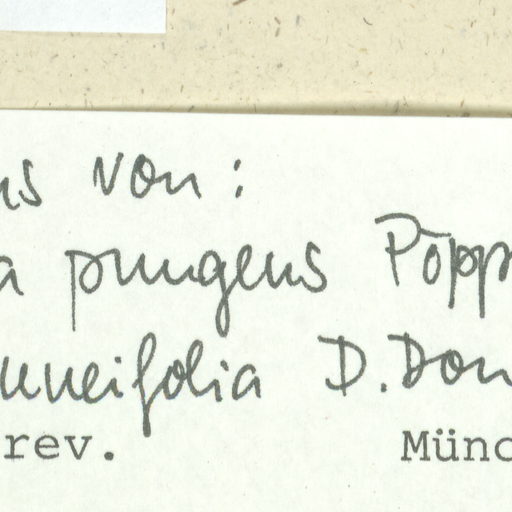 ns von:
a pungens Pöpp
uneifolia D.Don
rev. Münc